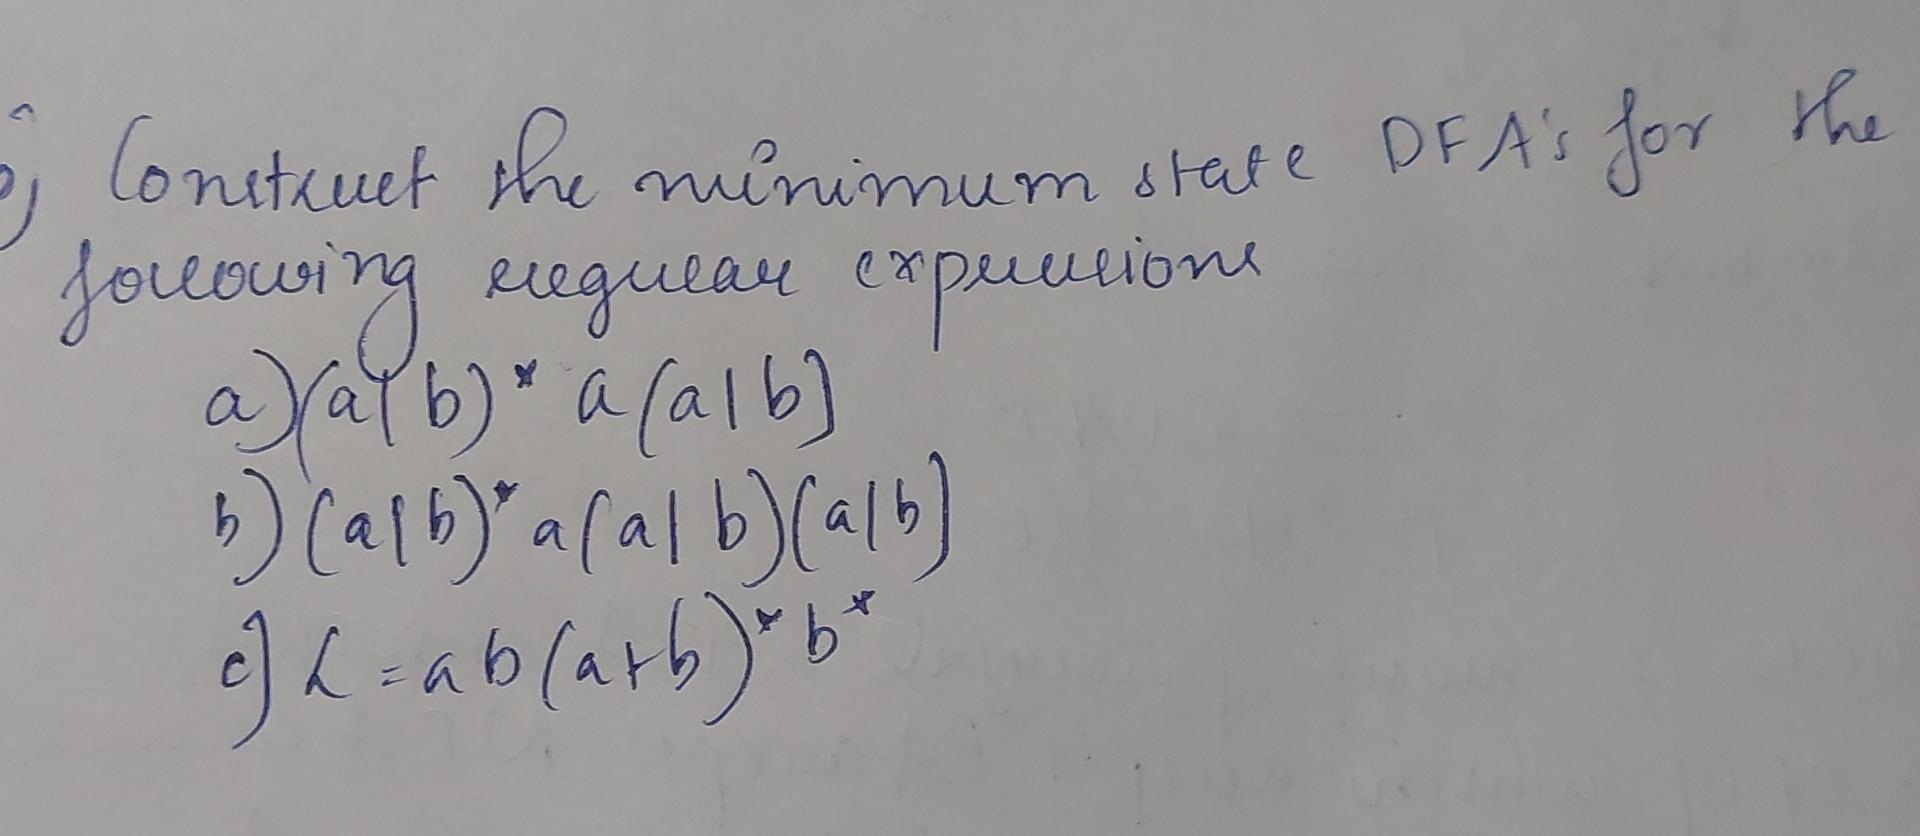 Construct the minimum state DFA's for the
following regular expressions
a) (a|b)* a(a|b)
b) (a|b)* a(a|b)(a|b)
c) L = ab(a+b)* b*